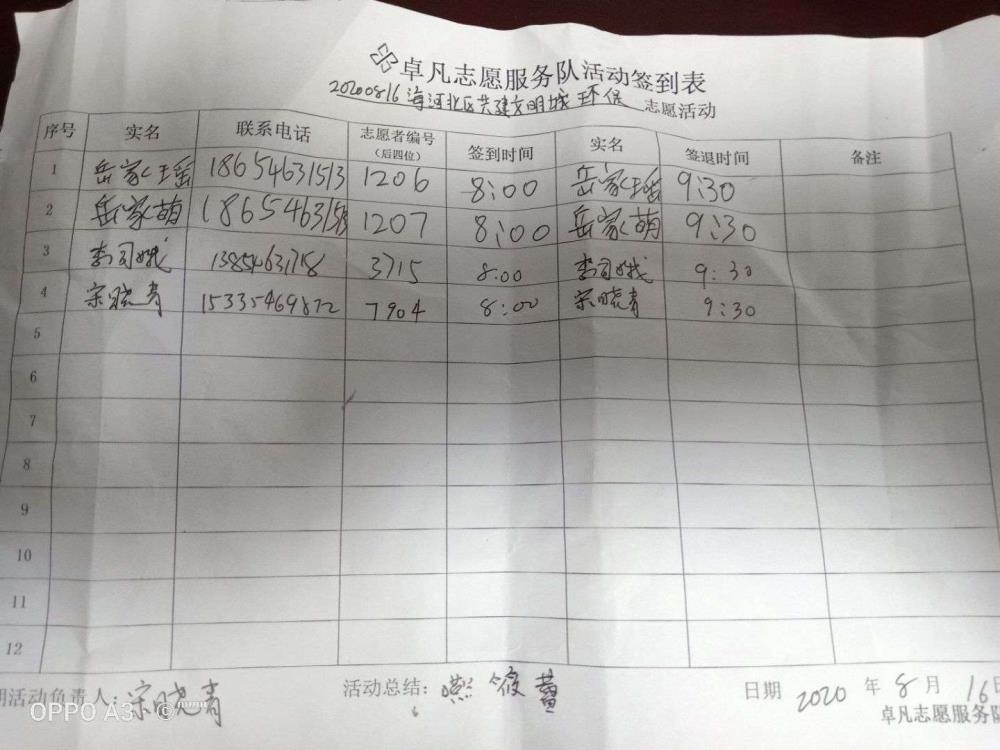 卓凡志愿服务队活动签到表
20200816海河北区共建文明城环保 志愿活动
序号 实名 联系电话 志愿者编号（后四位） 签到时间 实名 签退时间 备注
1 岳家瑶 18654631513 1206 8:00 岳家瑶 9:30
2 岳家萌 1207 8:00 岳家萌 9:30
3 李司娥 13854631718 3715 8:00 李司娥 9:30
4 宋晓青 15335469872 7904 8:00 宋晓青 9:30
5
6
7
8
9
10
11
12
期活动负责人：宋晓青 活动总结： 日期 2020 年 8 月 16日
卓凡志愿服务队
OPPO A3